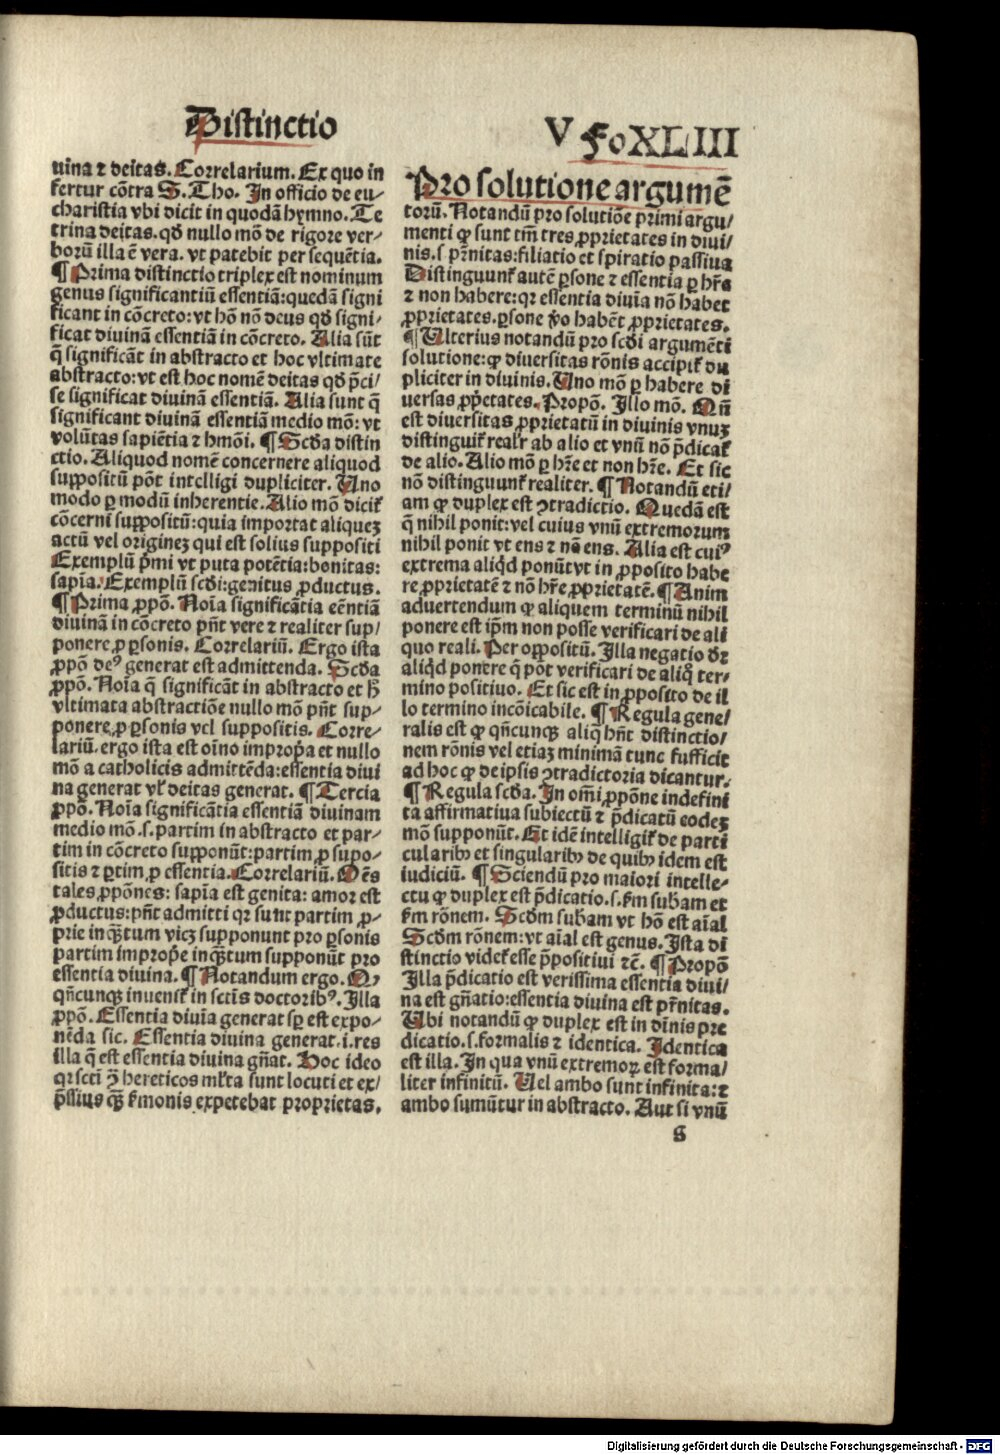 Distinctio
V FoXLIII
uina ⁊ deitas. Correlarium. Ex quo in
fertur cōtra S. Tho. In officio de eu-
charistia vbi dicit in quodā hymno. Te
trina deitas. qd̄ nullo mō de rigore ver-
borū illa ē vera. vt patebit per sequētia.
¶ Prima distinctio triplex est nominum
genus significantiū essentiā: quedā signi
ficant in cōcreto: vt hō nō deus qd̄ signi-
ficat diuinā essentiā in cōcreto. Alia sūt
q̄ significāt in abstracto et hoc vltimate
abstracto: vt est hoc nomē deitas qd̄ p̄ci/
se significat diuinā essentiā. Alia sunt q̄
significant diuinā essentiā medio mō: vt
volūtas sapiētia ⁊ hmōi. ¶ Scd̄a distin
ctio. Aliquod nomē concernere aliquod
suppositū pōt intelligi dupliciter. Uno
modo ꝑ modū inherentie. Alio mō dicit̄
cōcerni suppositū: quia importat aliquez
actū vel originez qui est solius suppositi
Exemplū p̄mi vt puta potētia: bonitas:
sapīa. Exemplū scd̄i: genitus ꝓductus.
¶ Prima ꝓpō. Noīa significātia eēntiā
diuinā in cōcreto pn̄t vere ⁊ realiter sup/
ponere ꝓ ꝑsonis. Correlariū. Ergo ista
ꝓpō de⁹ generat est admittenda. Scd̄a
ꝓpō. Noīa q̄ significāt in abstracto et h̄
vltimata abstractiōe nullo mō pn̄t sup-
ponere ꝓ ꝑsonis vel suppositis. Corre-
lariū. ergo ista est oīno impropa et nullo
mō a catholicis admittēda: essentia diui
na generat vl̄ deitas generat. ¶ Tercia
ꝓpō. Noīa significātia essentiā diuinam
medio mō .s. partim in abstracto et par-
tim in cōcreto supponūt: partim ꝓ supo-
sitis ⁊ ꝑtim ꝓ essentia. Correlariū. Oēs
tales ꝓpōnes: sapīa est genita: amor est
ꝓductus: pn̄t admitti qꝛ sunt partim ꝓ-
prie inquātum vicz supponunt pro ꝑsonis
partim imprope inquātum supponūt pro
essentia diuina. ¶ Notandum ergo. Q,
qn̄cunqꝫ inuenit̄ in sctīs doctorib⁹. Illa
ꝓpō. Essentia diuīa generat sp̄ est expo-
nēda sic. Essentia diuina generat .i. res
illa q̄ est essentia diuina gn̄at. Hoc ideo
qꝛ scti ꝯ hereticos ml̄ta sunt locuti et ex/
p̄ssius qꝫ s̄monis expetebat proprietas.
Pro solutione argumē
torū. Notandū pro solutiōe primi argu/
menti ꝙ sunt tm̄ tres ꝓprietates in diui/
nis .s. pr̄nitas: filiatio et spiratio passiua
Distinguunt̄ autē ꝑsone ⁊ essentia ꝑ hr̄e
⁊ non habere: qꝛ essentia diuīa nō habet
ꝓprietates. ꝑsone v̄o habēt ꝓprietates.
¶ Ulterius notandū pro scd̄i argumēti
solutione: ꝙ diuersitas rōnis accipit̄ du
pliciter in diuinis. Uno mō ꝑ habere di
uersas ꝓp̄etates. Propō. Illo mō. Qn̄
est diuersitas ꝓprietatū in diuinis vnuꝫ
distinguit̄ realr̄ ab alio et vnū nō p̄dicat̄
de alio. Alio mō ꝑ hr̄e et non hr̄e. Et sic
nō distinguunt̄ realiter. ¶ Notandū eti/
am ꝙ duplex est ꝯtradictio. Quedā est
q̄ nihil ponit: vel cuius vnū extremorum
nihil ponit vt ens ⁊ nō ens. Alia est cui⁹
extrema aliqd̄ ponūt vt in ꝓposito habe
re ꝓprietatē ⁊ nō hr̄e ꝓprietatē. ¶ Anim
aduertendum ꝙ aliquem terminū nihil
ponere est ip̄m non posse verificari de ali
quo reali. Per oppositū. Illa negatio dr̄
aliqd̄ ponere q̄ pōt verificari de aliq̄ ter-
mino positiuo. Et sic est in ꝓposito de il
lo termino incōicabile. ¶ Regula gene/
ralis est ꝙ qn̄cunqꝫ aliq̄ hn̄t distinctio/
nem rōnis vel etiaꝫ minimā tunc sufficit
ad hoc ꝙ de ipsis ꝯtradictoria dicantur.
¶ Regula scd̄a. In om̄i ꝓpōne indefini
ta affirmatiua subiectū ⁊ p̄dicatū eodeꝫ
mō supponūt. Et idē intelligit̄ de parti
cularibꝫ et singularibꝫ de quibꝫ idem est
iudiciū. ¶ Sciendū pro maiori intelle-
ctu ꝙ duplex est p̄dicatio .s. s̄m subam et
s̄m rōnem. Scd̄m subam vt hō est aīal
Scd̄m rōnem: vt aīal est genus. Ista di
stinctio videt̄ esse p̄positiui ⁊c̄. ¶ Propō
Illa p̄dicatio est verissima essentia diui/
na est gn̄atio: essentia diuina est pr̄nitas.
Ubi notandū ꝙ duplex est in dīnis pre
dicatio .s. formalis ⁊ identica. Identica
est illa. In qua vnū extremoꝝ est forma/
liter infinitū. Uel ambo sunt infinita: ⁊
ambo sumūtur in abstracto. Aut si vnū
G
Digitalisierung gefördert durch die Deutsche Forschungsgemeinschaft - DFG